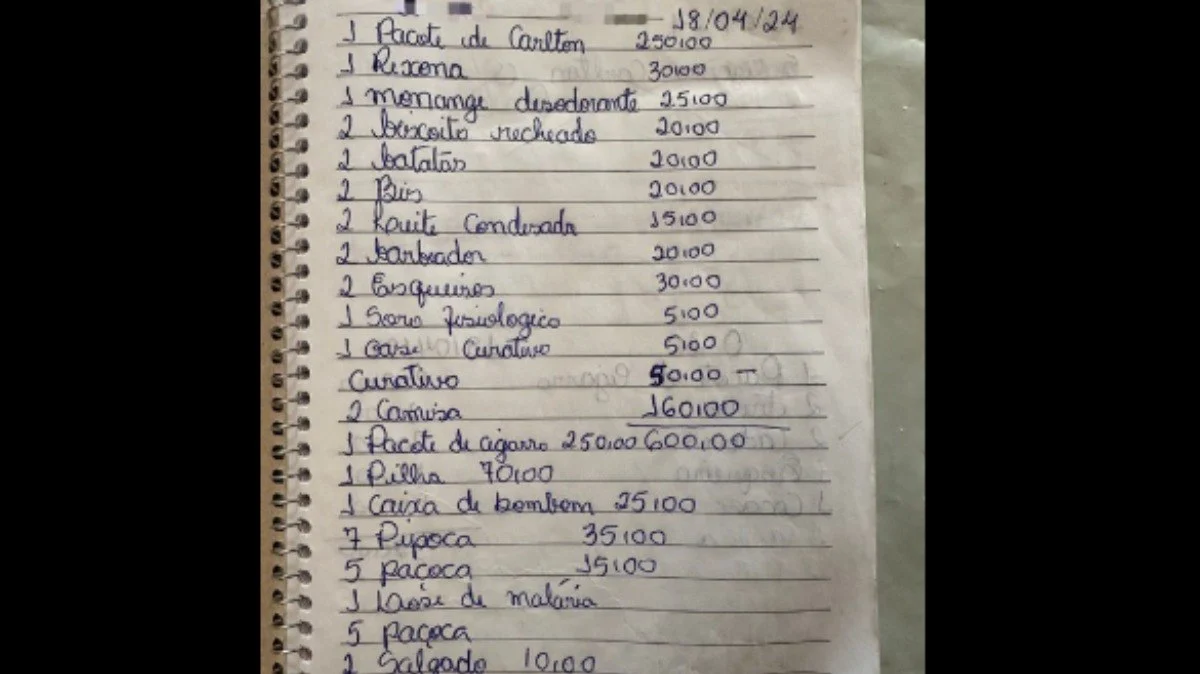 18/04/24
1 Pacote de Carlton 250,00
1 Rexona 30,00
1 monange desodorante 25,00
2 biscoito recheado 20,00
2 batatas 20,00
2 Bis 20,00
2 Leite Condesado 15,00
2 barbeador 20,00
2 Esqueiros 30,00
1 Soro fisiologico 5,00
1 Gase Curativo 5,00
Curativo 50,00 —
2 Camisa 160,00
1 Pacote de cigarro 250,00 600,00
1 Pilha 70,00
1 Caixa de bombom 25,00
7 Pipoca 35,00
5 paçoca 15,00
1 de malária
5 paçoca
2 Salgado 10,00